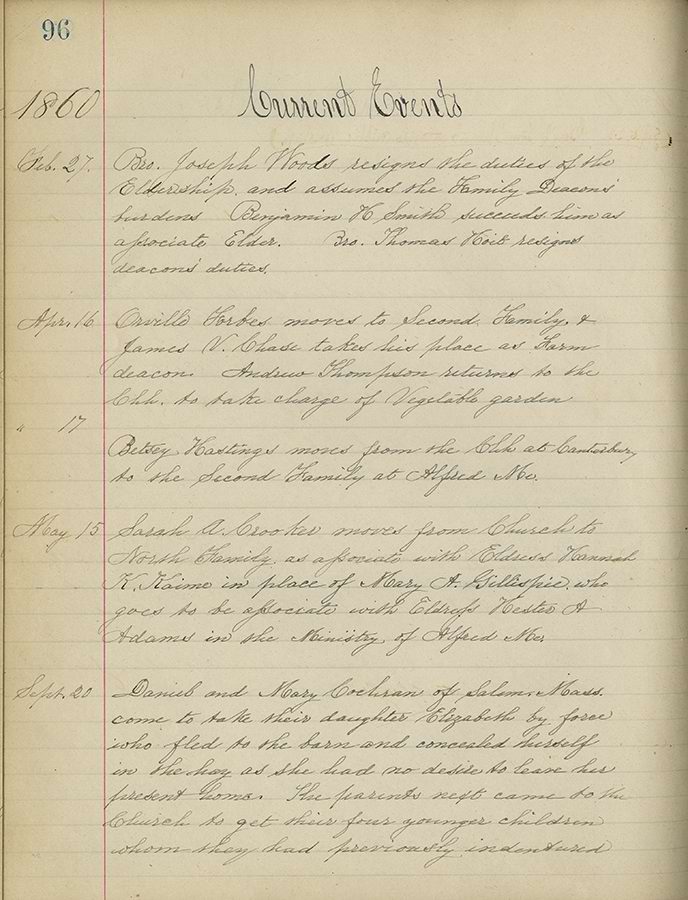 96
1860 Current Events
Feb. 27. Bro. Joseph Woods resigns the duties of the
Eldership, and assumes the Family Deacon's
burdens Benjamin H Smith succeeds him as
associate Elder. Bro. Thomas Hoit resigns
deacon's duties.
Apr. 16 Orville Forbes moves to Second Family, &
James V. Chase takes his place as Farm
deacon. Andrew Thompson returns to the
Chh. to take charge of Vegetable garden
" 17
Betsey Hastings moves from the Chh at Canterbury
to the Second Family at Alfred Me.
May 15 Sarah A. Crooker moves from Church to
North Family, as associate with Eldress Hannah
K. Kaime in place of Mary A. Gillispie, who
goes to be associate with Eldress Hester A
Adams in the Ministry, of Alfred Me.
Sept. 20 Daniel and Mary Cochran of Salem, Mass.
come to take their daughter Elizabeth by force
who fled to the barn and concealed herself
in the hay as she had no desire to leave her
present home. The parents next came to the
Church to get their four younger children
whom they had previously indentured